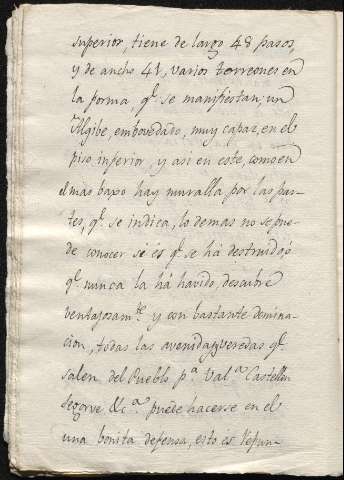 superior, tiene de largo 48 pasos,
y de ancho 41, varios torreones en
la forma, qe. se manifiestan; un
Algibe embovedado, muy capaz, en el
piso inferior, y asi en este, como en
el mas baxo hay muralla por las par-
tes, qe. se indica, lo demas no se pue-
de conocer si es qe. se há destruido, ó
qe. nunca la há havido, descubre
ventajosamte. y con bastante domina-
cion, todas las avenidas, y veredas qe.
salen del Pueblo pa. Vala. Castellon
Segorve &ca. puede hacerse en el
una bonita defensa, esto es depun-